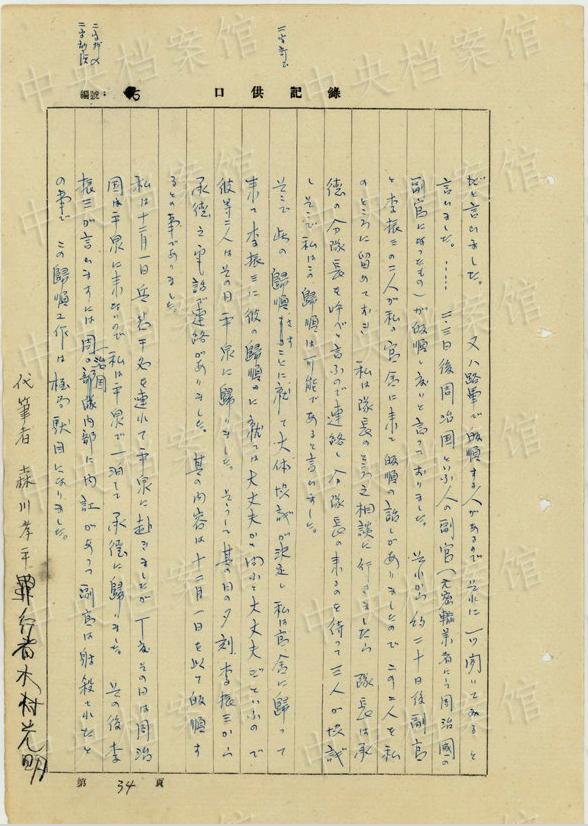 口供記錄
編號： 5
だと言いました。 又八路軍で帰順する人があるので 其れに一つ聞いてみると
言いました。…… 二三日後周治国といふ人の副官（元密輸業者にて周治國の
副官になつたもの）が帰順し度いと言つて居りました。 其れから約二十日後副官
と李振三の二人が私の官舎に来て帰順の話しがありましたので この二人を私
のところに留めておき 私は隊長のところえ相談に行きましたら 隊長は承
德の分隊長を呼べと言ふので連絡し 分隊長の来るのを待つて三人が協議
し そこで私はこの歸順は可能であると言いました。
そこで此の歸順さすことに就て大体協議が決定し 私は官舎に歸つて
来て李振三に彼の歸順に就ては大丈夫か問ふと大丈夫だといふので
彼等二人はその日平泉に歸りました。 そうして其の日の夕刻李振三から
承德え電話で連絡がありました。 其の内容は十二月一日を以て帰順す
るとの事でありました。
私は十二月一日兵若干名を連れて平泉に赴きましたが 丁度その日は周治
国は平泉に来ないので 私は平泉で一泊して承德に歸りました。 其の後李
振三が言いますには周治国の部隊内部に内訌があつて 副官は射殺されたと
の事で この歸順工作は 駄目になりました。
代筆者 森川孝平 罪行者 木村光明
第 34 頁
中央档案馆